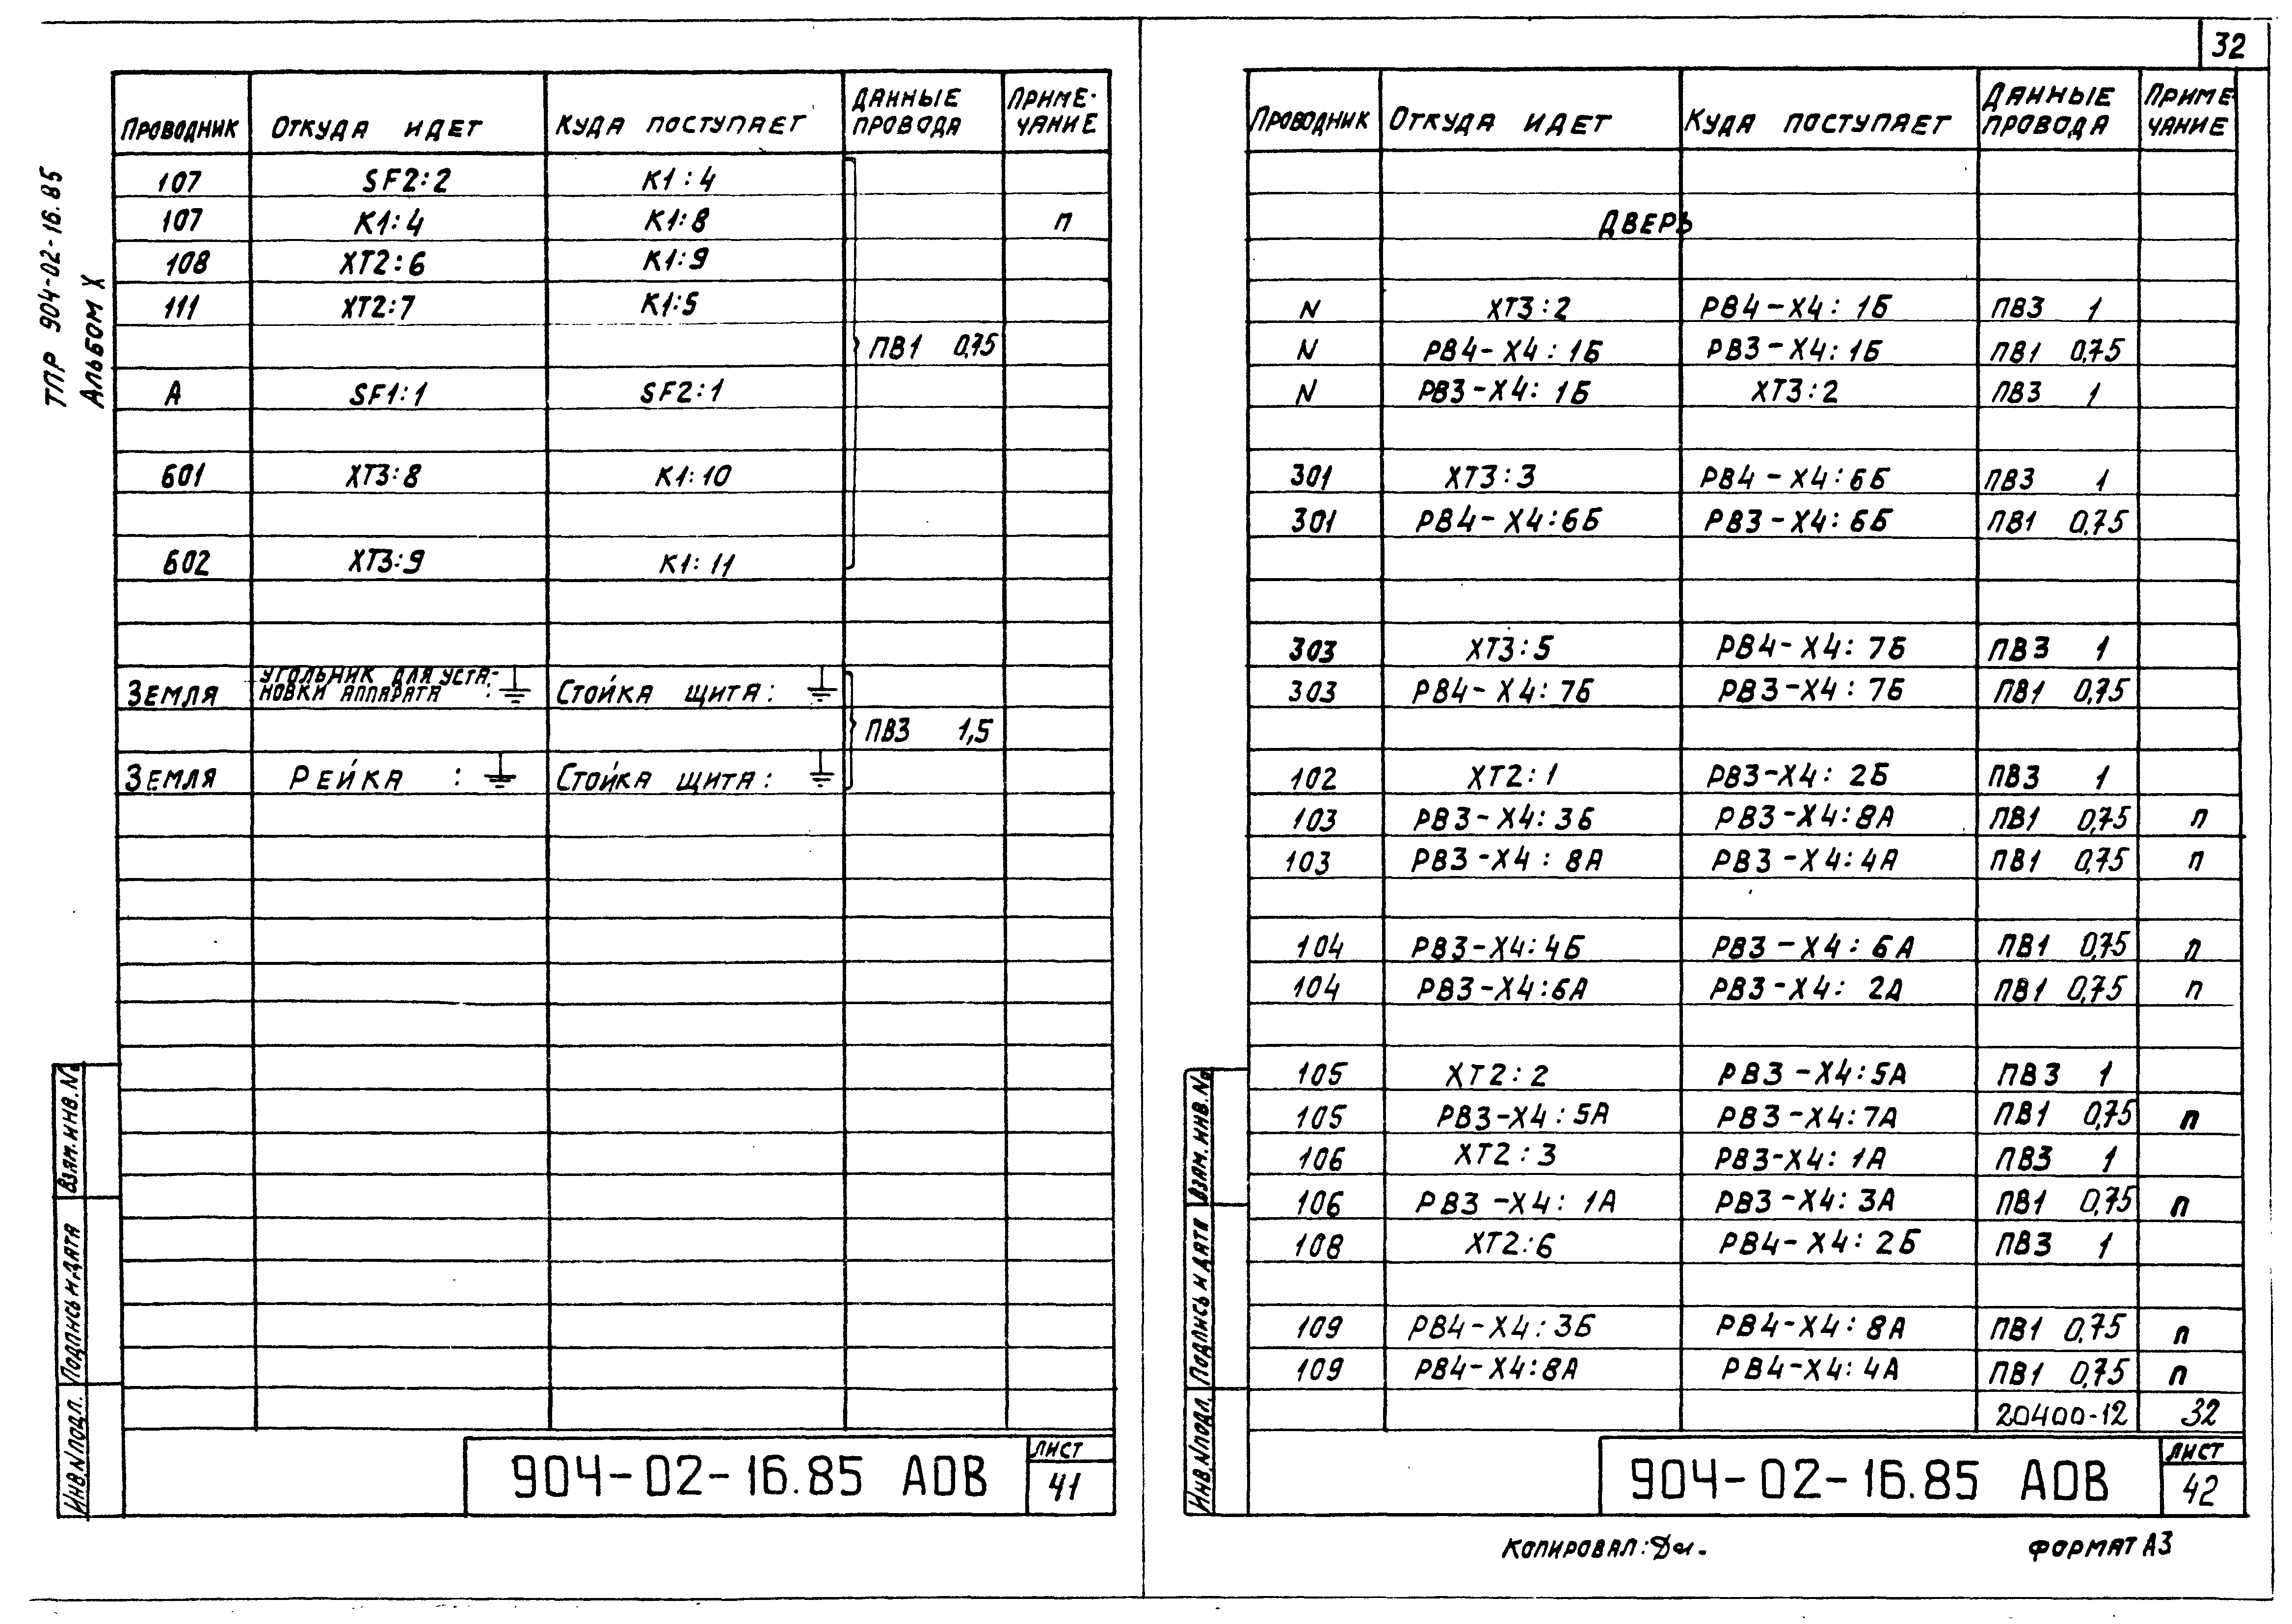 32
ТПР 904-02-16.85
Альбом X
Проводник Откуда идет Куда поступает Данные провода Приме-чание
107 SF2:2 К1:4
107 К1:4 К1:8 п
108 ХТ2:6 К1:9
111 ХТ2:7 К1:5
ПВ1 0,75
А SF1:1 SF2:1
601 ХТ3:8 К1:10
602 ХТ3:9 К1:11
Земля Угольник для уста-новки аппарата : Стойка щита:
ПВ3 1,5
Земля Рейка : Стойка щита:
Взам.инв.№
Подпись и дата
Инв.№подл.
904-02-16.85 АОВ
лист
41
Проводник Откуда идет Куда поступает Данные провода Приме чание
Дверь
N ХТ3:2 РВ4-Х4:1Б ПВ3 1
N РВ4-Х4:1Б РВ3-Х4:1Б ПВ1 0,75
N РВ3-Х4:1Б ХТ3:2 ПВ3 1
301 ХТ3:3 РВ4-Х4:6Б ПВ3 1
301 РВ4-Х4:6Б РВ3-Х4:6Б ПВ1 0,75
303 ХТ3:5 РВ4-Х4:7Б ПВ3 1
303 РВ4-Х4:7Б РВ3-Х4:7Б ПВ1 0,75
102 ХТ2:1 РВ3-Х4:2Б ПВ3 1
103 РВ3-Х4:3Б РВ3-Х4:8А ПВ1 0,75 п
103 РВ3-Х4:8А РВ3-Х4:4А ПВ1 0,75 п
104 РВ3-Х4:4Б РВ3-Х4:6А ПВ1 0,75 п
104 РВ3-Х4:6А РВ3-Х4:2А ПВ1 0,75 п
105 ХТ2:2 РВ3-Х4:5А ПВ3 1
105 РВ3-Х4:5А РВ3-Х4:7А ПВ1 0,75 п
106 ХТ2:3 РВ3-Х4:1А ПВ3 1
106 РВ3-Х4:1А РВ3-Х4:3А ПВ1 0,75 п
108 ХТ2:6 РВ4-Х4:2Б ПВ3 1
109 РВ4-Х4:3Б РВ4-Х4:8А ПВ1 0,75 п
109 РВ4-Х4:8А РВ4-Х4:4А ПВ1 0,75 п
20400-12 32
Взам.инв.№
Подпись и дата
Инв.№подл.
904-02-16.85 АОВ
лист
42
Копировал:
Формат А3